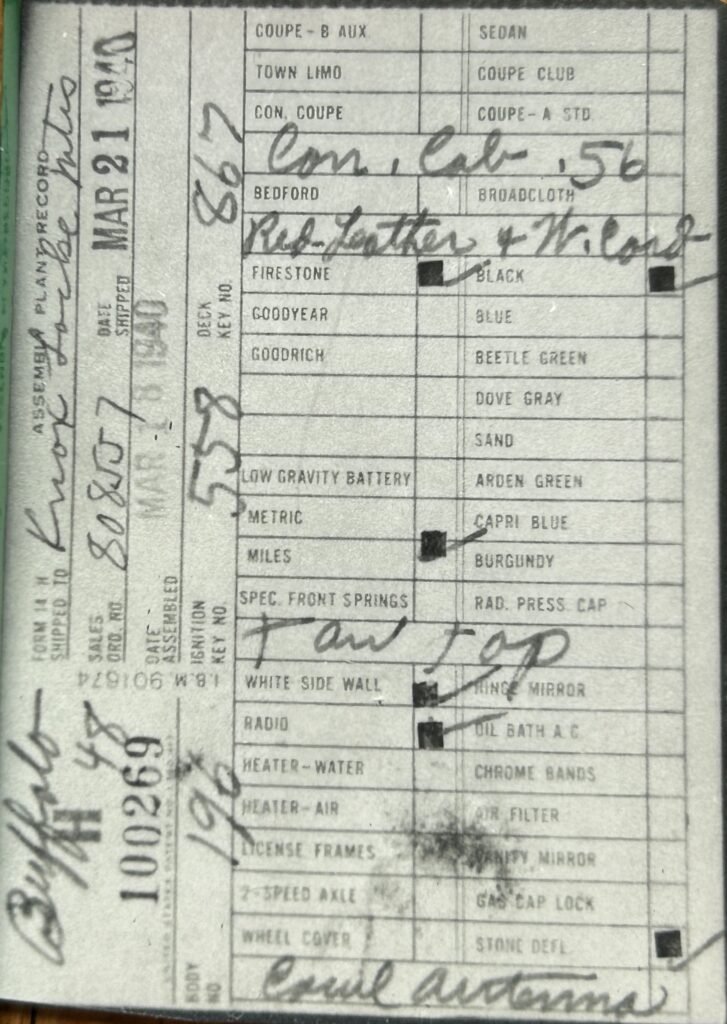 FORM 14 H ASSEMBLY PLANT RECORD
SHIPPED TO Knox Locke Mtrs
SALES ORD. NO. 80857 DATE SHIPPED MAR 21 1940
DATE ASSEMBLED MAR 18 1940
IGNITION KEY NO. 558 DECK KEY NO. 867
Buffalo
H 48
100269
I.B.M. 901674
BODY NO. 196
COUPE - B AUX SEDAN
TOWN LIMO COUPE CLUB
CON. COUPE COUPE - A STD
Con. Cab .56
BEDFORD BROADCLOTH
Red Leather + W. Cord
FIRESTONE BLACK
GOODYEAR BLUE
GOODRICH BEETLE GREEN
DOVE GRAY
SAND
LOW GRAVITY BATTERY ARDEN GREEN
METRIC CAPRI BLUE
MILES BURGUNDY
SPEC. FRONT SPRINGS RAD. PRESS CAP
Tan top
WHITE SIDE WALL HINGE MIRROR
RADIO OIL BATH A C
HEATER-WATER CHROME BANDS
HEATER-AIR AIR FILTER
LICENSE FRAMES VANITY MIRROR
2-SPEED AXLE GAS CAP LOCK
WHEEL COVER STONE DEFL
Cowl antenna